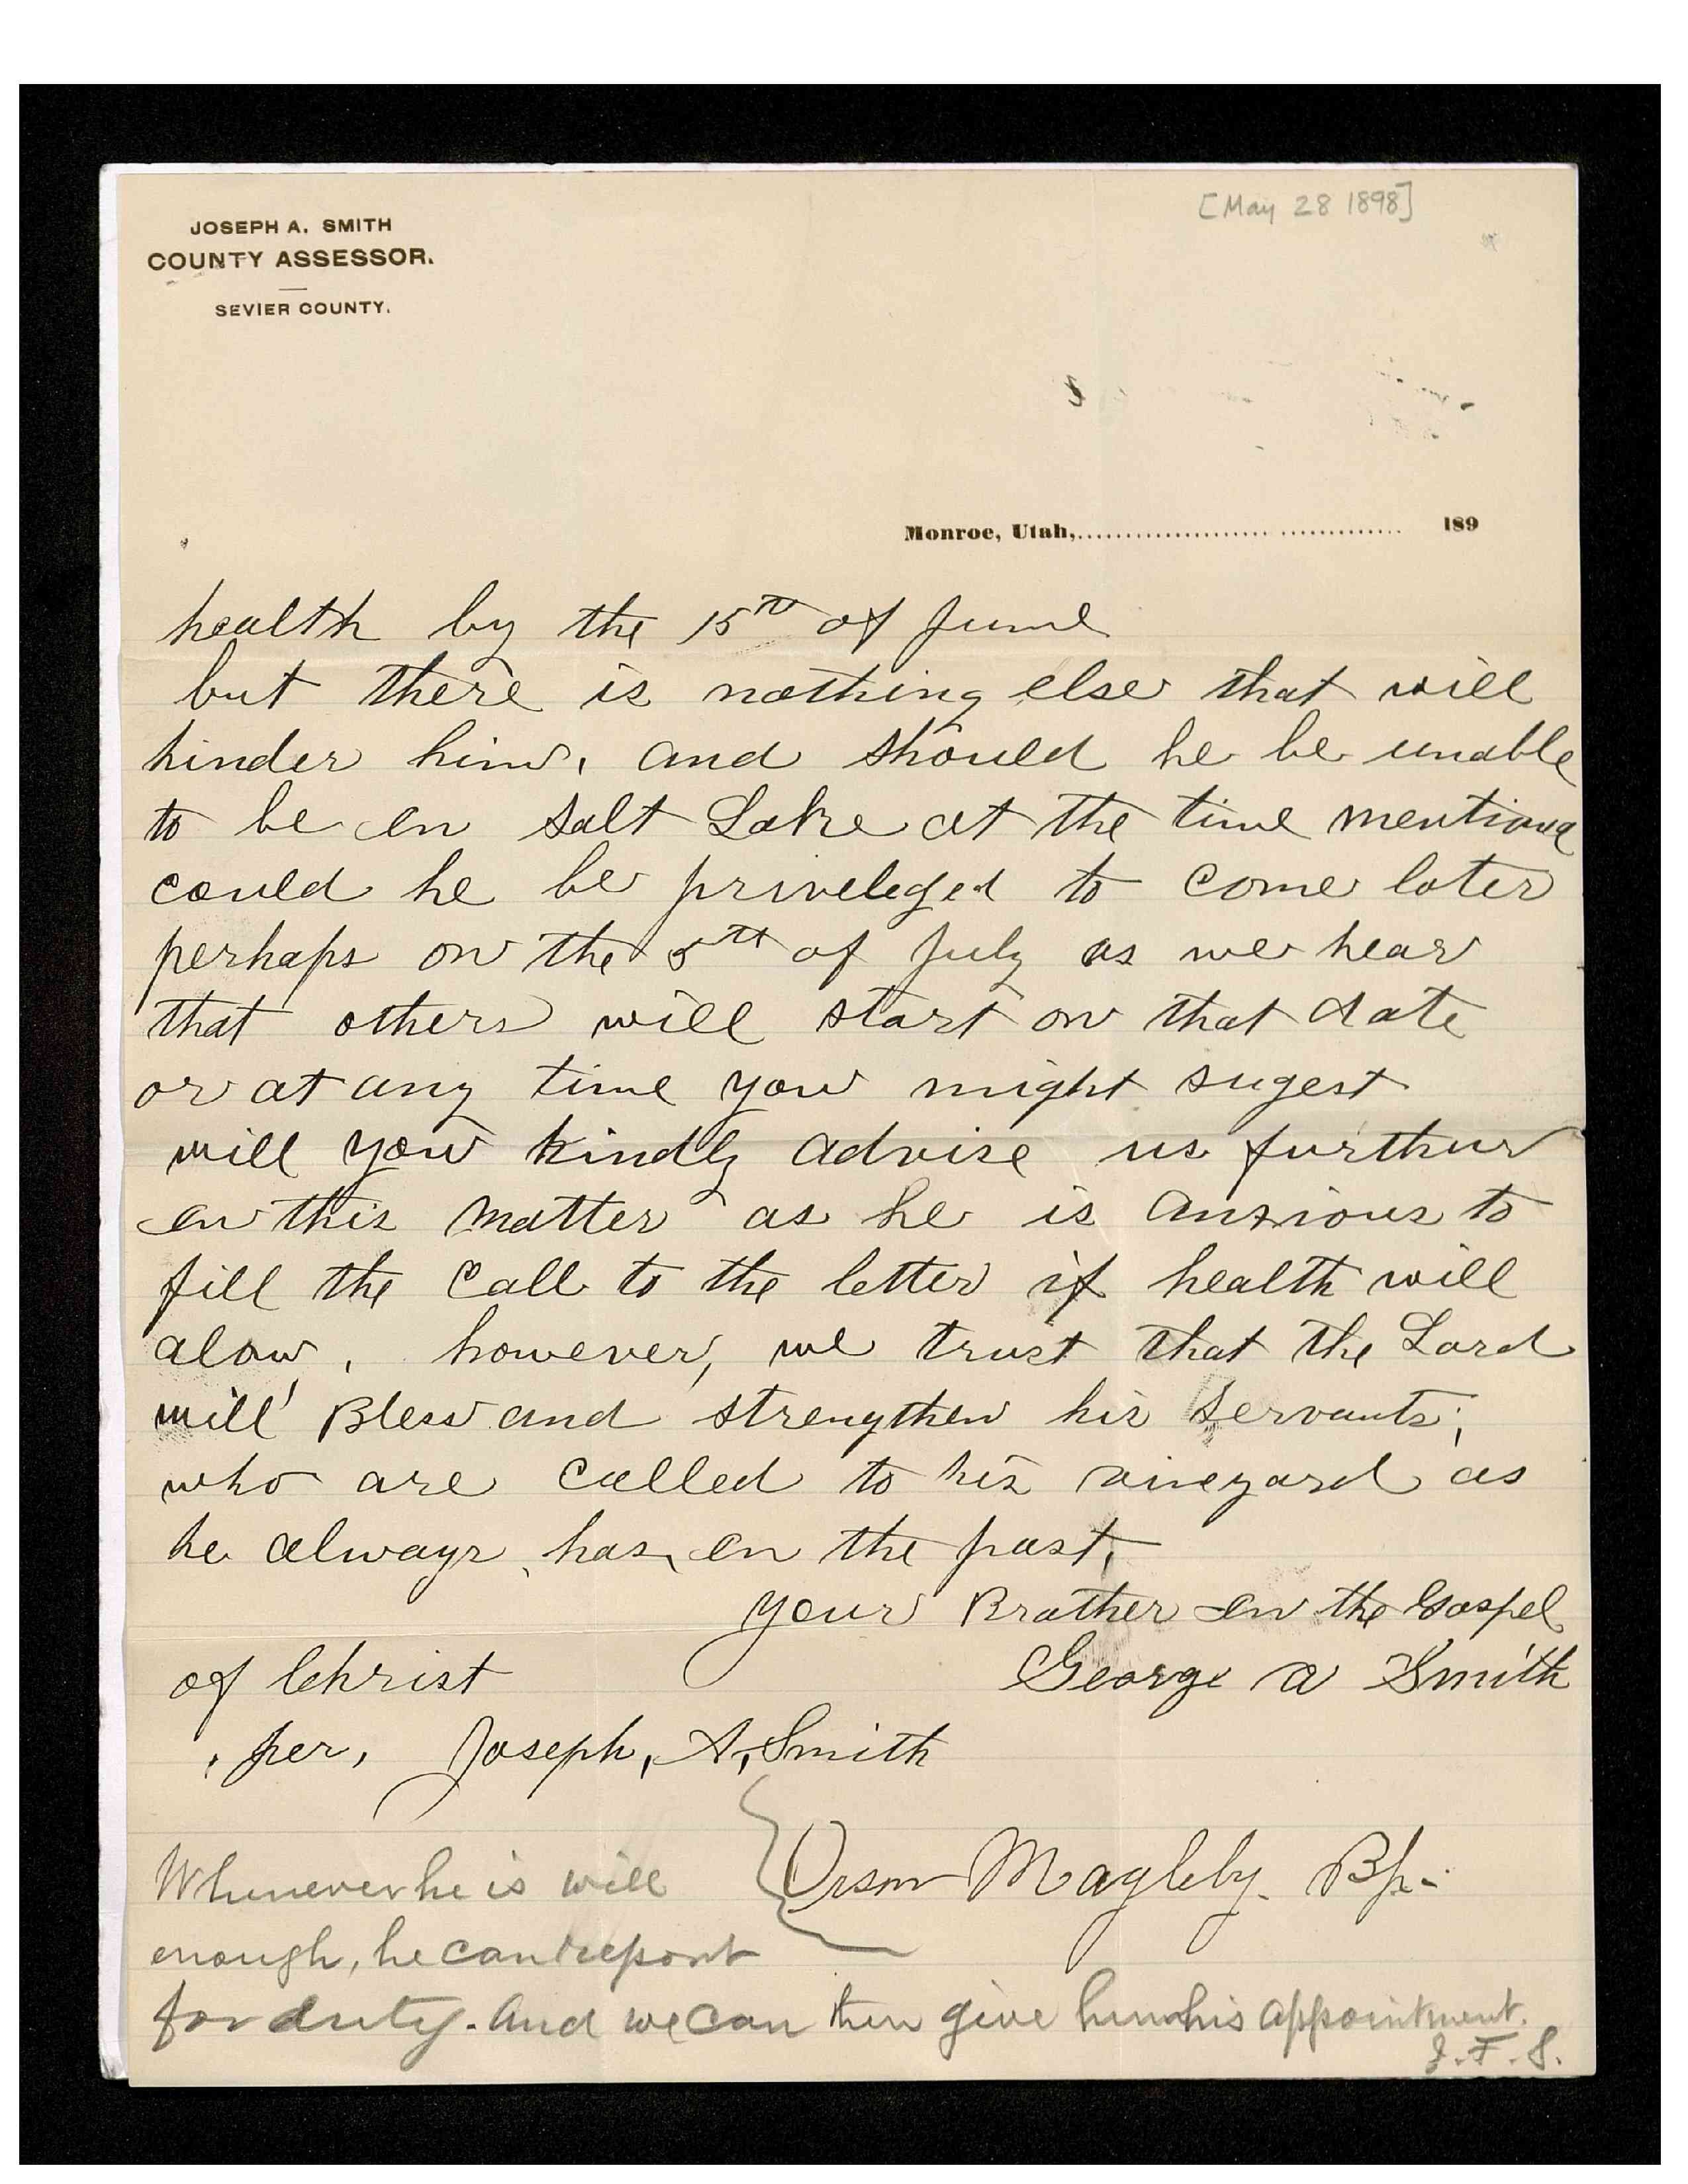 [May 28 1898]
JOSEPH A. SMITH
COUNTY ASSESSOR.
SEVIER COUNTY.
Monroe, Utah, 189
health by the 15th of June
but there is nothing else that will
hinder him, and should he be unable
to be in Salt Lake at the time mentiond
could he be priveleged to come later
perhaps on the 5th of July as we hear
that others will start on that date
or at any time you might sugest
will you kindly advise us furthur
in this matter as he is anxious to
fill the call to the letter if health will
alow, however, we trust that the Lord
will Bless and strengthen his servants;
who are called to his vineyard as
he always has in the past,
your Brother in the Gospel
of Christ George A Smith
per, Joseph, A, Smith
Orson Magleby. Bp.
Whenever he is well
enough, he can report
for duty. And we can then give him his appointment.
J. F. S.